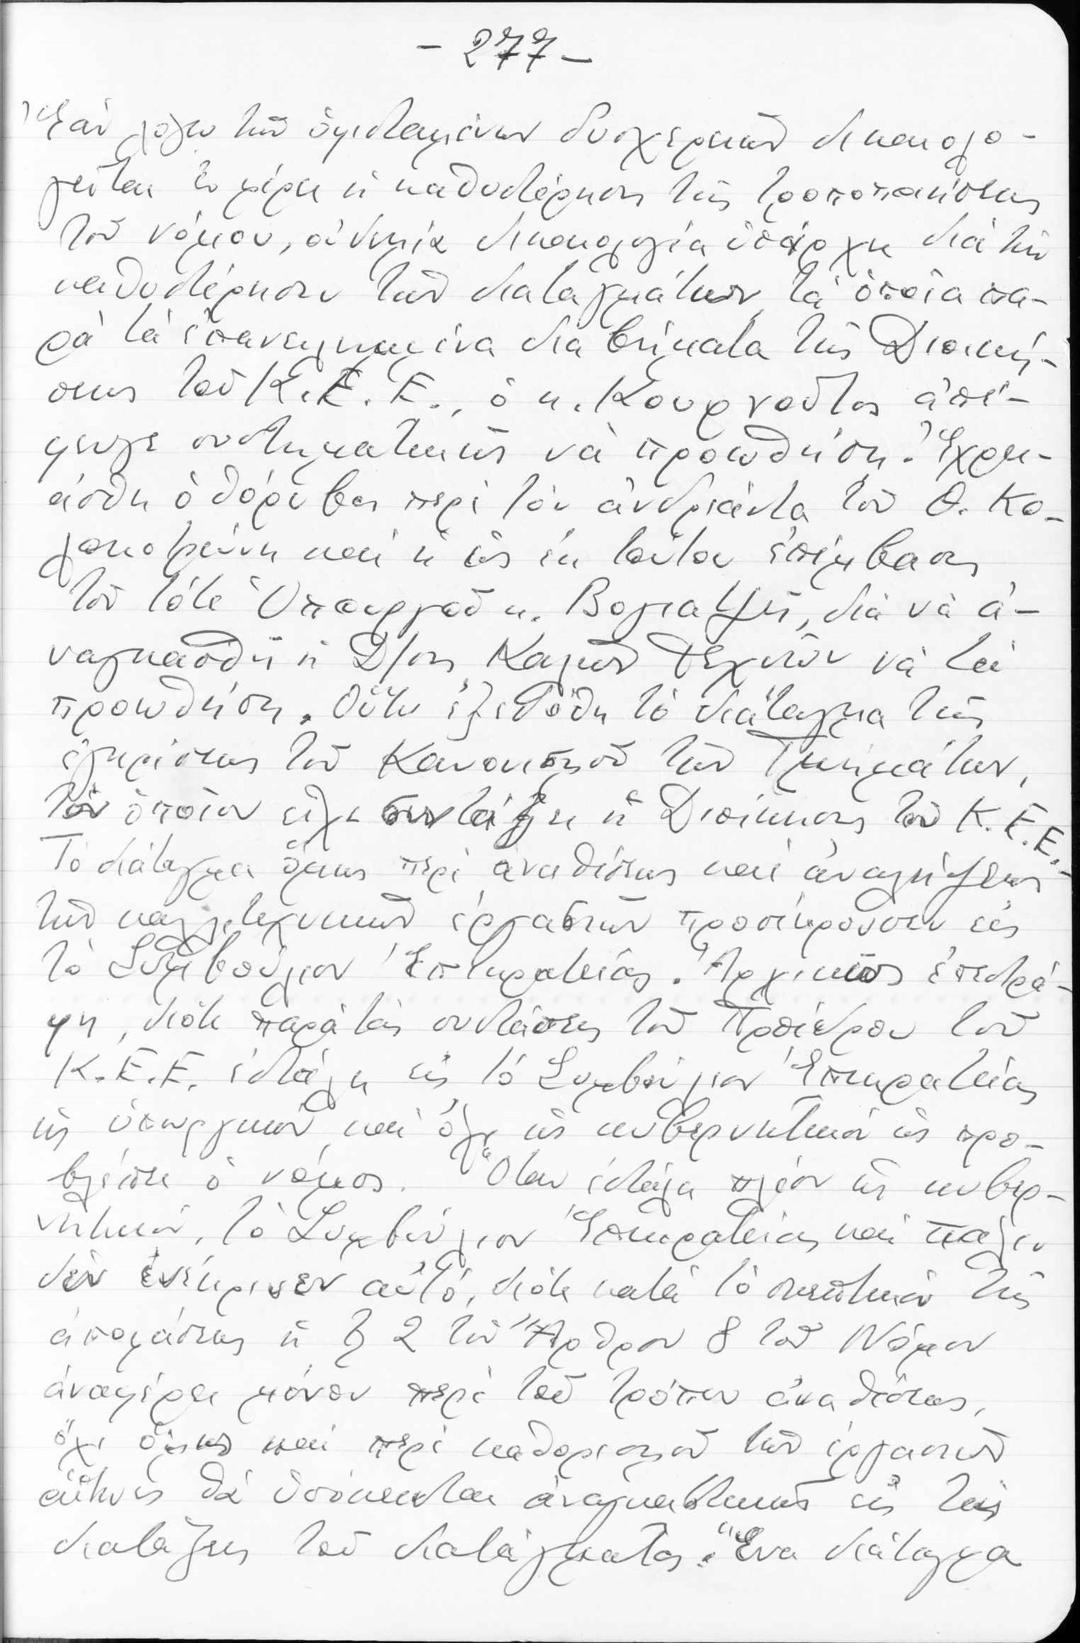 - 277 -
Ἐὰν λόγῳ τῶν ὑφισταμένων δυσχερειῶν δικαιολο-
γεῖται ἐν μέρει ἡ καθυστέρησις τῆς τροποποιήσεως
τοῦ νόμου, οὐδεμία δικαιολογία ὑπάρχει διὰ τὴν
καθυστέρησιν τῶν διαταγμάτων, τὰ ὁποῖα πα-
ρὰ τὰ ἐπανειλημμένα διαβήματα τῆς Διοική-
σεως τοῦ Κ.Ε.Ε., ὁ κ. Κουρνοῦτος ἀπέ-
φευγε συστηματικῶς νὰ προωθήσῃ. Ἐχρει-
άσθη ὁ θόρυβος περὶ τὸν ἀνδριάντα τοῦ Θ. Κο-
λοκοτρώνη καὶ ἡ ὡς ἐκ τούτου ἐπέμβασις
τοῦ τότε Ὑπουργοῦ κ. Βογιατζῆ, διὰ νὰ ἀ-
ναγκασθῇ ἡ Δ/σις Καλῶν Τεχνῶν νὰ τὰ
προωθήσῃ. Οὕτω ἐξεδόθη τὸ διάταγμα τῆς
ἐγκρίσεως τοῦ Κανονισμοῦ τῶν Τμημάτων,
τὸν ὁποῖον εἶχε συντάξει ἡ Διοίκησις τοῦ Κ.Ε.Ε.
Τὸ διάταγμα ὅμως περὶ ἀναθέσεως καὶ ἀναλήψεως
τῶν καλλιτεχνικῶν ἐργασιῶν προσέκρουσεν εἰς
τὸ Συμβούλιον Ἐπικρατείας. Ἀρχικῶς ἐπεστρά-
φη, διότι παρὰ τὰς συστάσεις τοῦ Προέδρου τοῦ
Κ.Ε.Ε. ἐστάλη εἰς τὸ Συμβούλιον Ἐπικρατείας
ὡς ὑπουργικόν καὶ ὄχι ὡς κυβερνητικόν ὡς προ-
βλέπει ὁ νόμος. Ὅταν ἐστάλη πλέον ὡς κυβερ-
νητικόν, τὸ Συμβούλιον Ἐπικρατείας καὶ πάλιν
δὲν ἐνέκρινεν αὐτό, διότι κατὰ τὸ σκεπτικὸν τῆς
ἀποφάσεως ἡ § 2 τοῦ Ἄρθρου 8 τοῦ Νόμου
ἀναφέρει μόνον περὶ τοῦ τρόπου ἀναθέσεως,
ὄχι ὅμως καὶ περὶ καθορισμοῦ τῶν ἐργασιῶν
αἵτινες θὰ ὑπόκεινται ἀναγκαστικῶς εἰς τὰς
διατάξεις τοῦ διατάγματος. Ἕνα διάταγμα